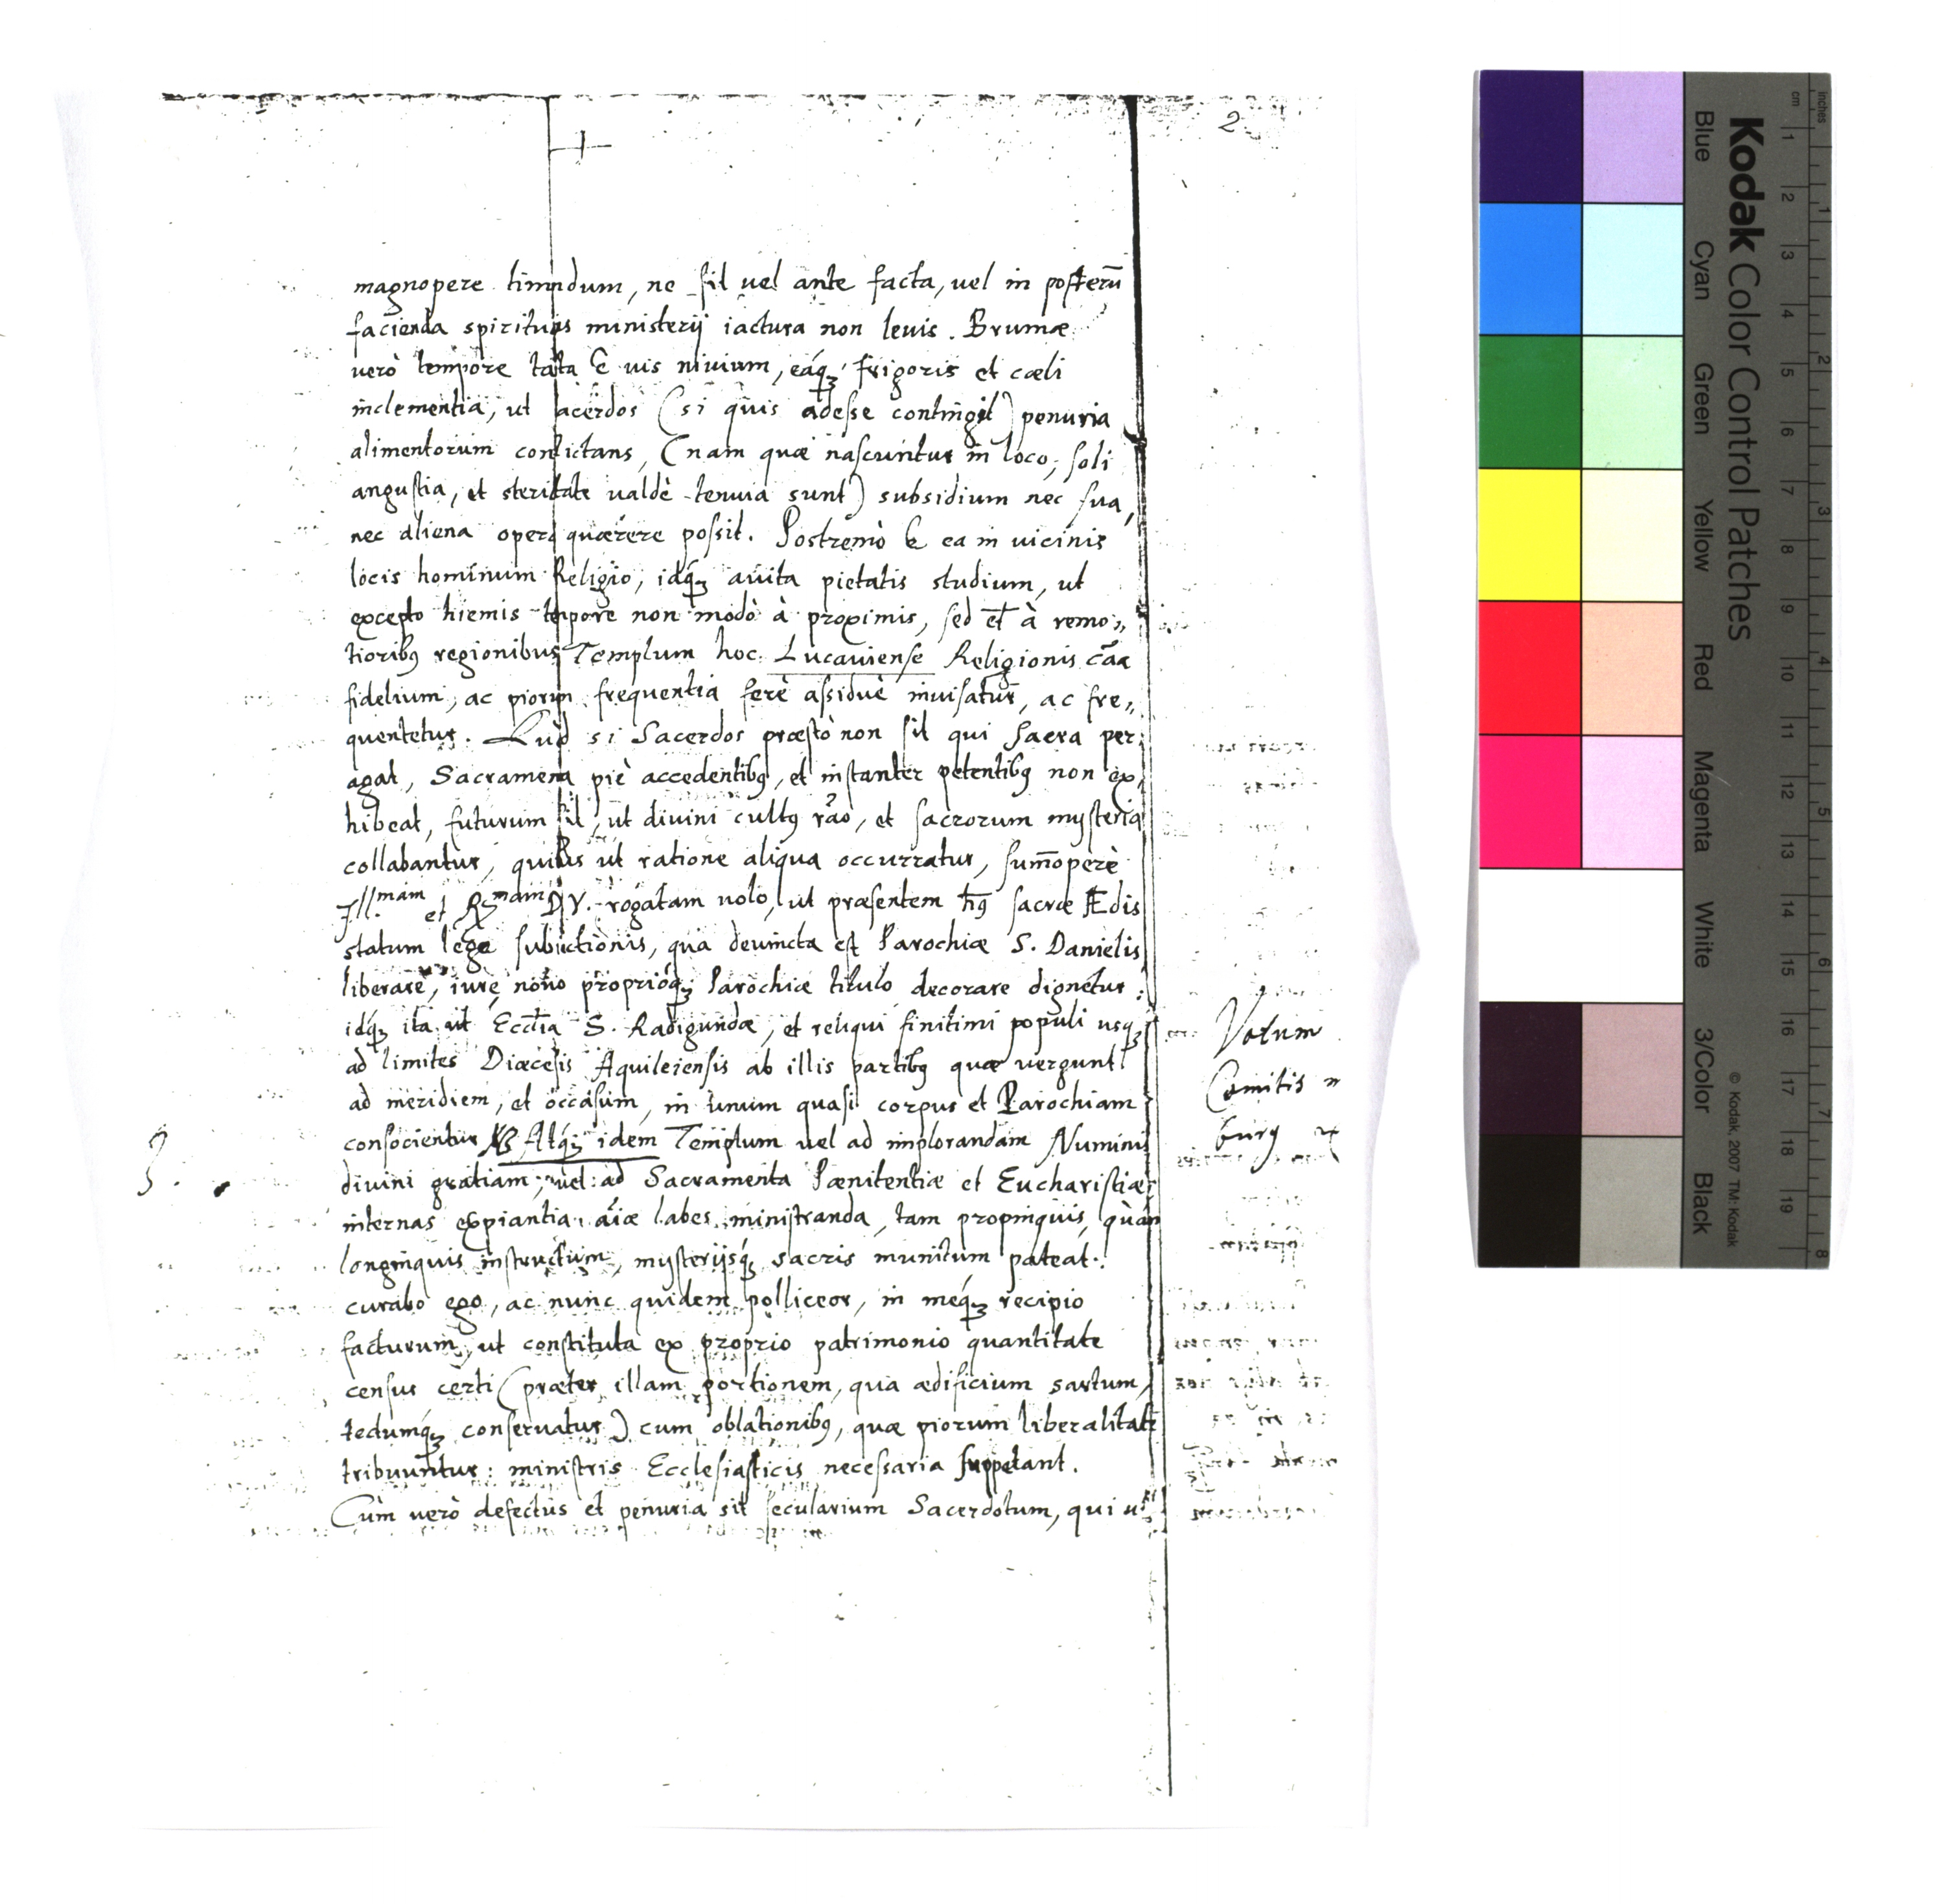 2
magnopere timndum, ne sit uel ante facta, uel in posterū
facienda spiritus ministerij iactura non leuis. Brumæ
uerò tempore tāta ē uis niuium, eáq; frigoris et cæli
inclementia, ut acerdos (si quis adesse contingit) penuria
alimentorum conlictans, (nam quæ nascuntur in loco, soli
angustia, et steritate ualdè tenuia sunt) subsidium nec sua,
nec aliena opera quærere possit. Postremò ea in uicinis
locis hominum Religio, idq́; auita pietatis studium, ut
excepto hiemis tepore non modò à proximis, sed et̄ à remo„
tiorib9 regionibus Templum hoc Lucauiense Religionis cāa
fidelium, ac piorum frequentia ferè assiduè inuisatur, ac fre„
quentetur. Quod si Sacerdos præstò non sit qui Sacra per„
agat, Sacramena piè accedentib9, et instanter petentib9 non ex„
hibeat, futurum sit, ut diuini cult9 rāo, et sacrorum mysteria
collabantur, quibus ut ratione aliqua occurratur, sum̄operè
Ill.mam et Rmam D V. rogatam uolo, ut præsentem h9 sacræ Ædis
statum lege subiectionis, qua deuincta est Parochiæ S. Danielis
liberare, iure nouo proprióq; Parochiæ titulo decorare dignetur:
idq́; ita ut Eccl̄ia S. Radigundæ, et reliqui finitimi populi usq;
ad limites Diœcesis Aquileiensis ab illis partib9 quæ vergunt
ad meridiem, et occasum, in unum quasi corpus et Parochiam
consocientur Atq́; idem Templum uel ad implorandam Numinis
diuini gratiam, uel ad Sacramenta Pænitentiæ et Eucharistiæ
internas expiantia aīæ labes ministranda, tam propinquis, quàm
longinquis instructum, mysterijsq́; sacris munitum pateat:
curabo ego, ac nunc quidem polliceor, in meq́; recipio
facturum, ut constituta ex proprio patrimonio quantitate
census certi (præter illam portionem, qua ædificium sartum,
tectumq́; conseruatur) cum oblationib9, quæ piorum liberalitate
tribuuntur: ministris Ecclesiasticis necessaria suppetant.
Cùm uerò defectus et penuria sit secularium Sacerdotum, qui
3.
Votum
Comitis
burg
Kodak Color Control Patches
Blue Cyan Green Yellow Red Magenta White 3/Color Black
© Kodak, 2007 TM: Kodak
inches
1 2 3 4 5 6 7 8
cm
1 2 3 4 5 6 7 8 9 10 11 12 13 14 15 16 17 18 19